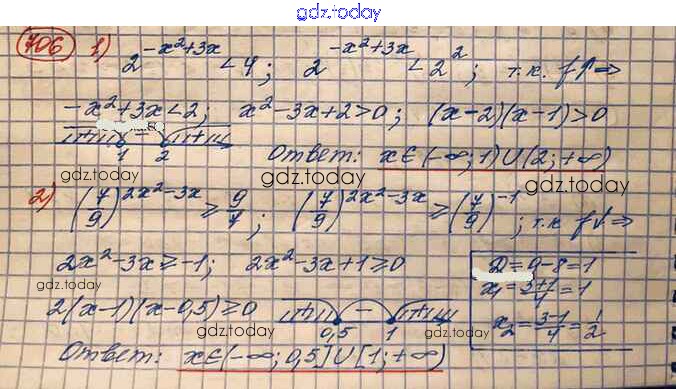 gdz.today
gdz.today
706 1) 2^{-x²+3x} < 4; 2^{-x²+3x} < 2²; т.к. f↑ ⇒
-x²+3x<2; x²-3x+2>0; (x-2)(x-1)>0
+ - +
1 2
Ответ: x∈(-∞;1)∪(2;+∞)
gdz.today gdz.today gdz.today
2) (7/9)^{2x²-3x} ≥ 9/7; (7/9)^{2x²-3x} ≥ (7/9)^{-1}; т.к f↓ ⇒
2x²-3x≥-1; 2x²-3x+1≥0
D=9-8=1
x₁=3+1/4=1
x₂=3-1/4=1/2
2(x-1)(x-0,5)≥0
+ - +
0,5 1
gdz.today gdz.today gdz.today
Ответ: x∈(-∞;0,5]∪[1;+∞)
gdz.today